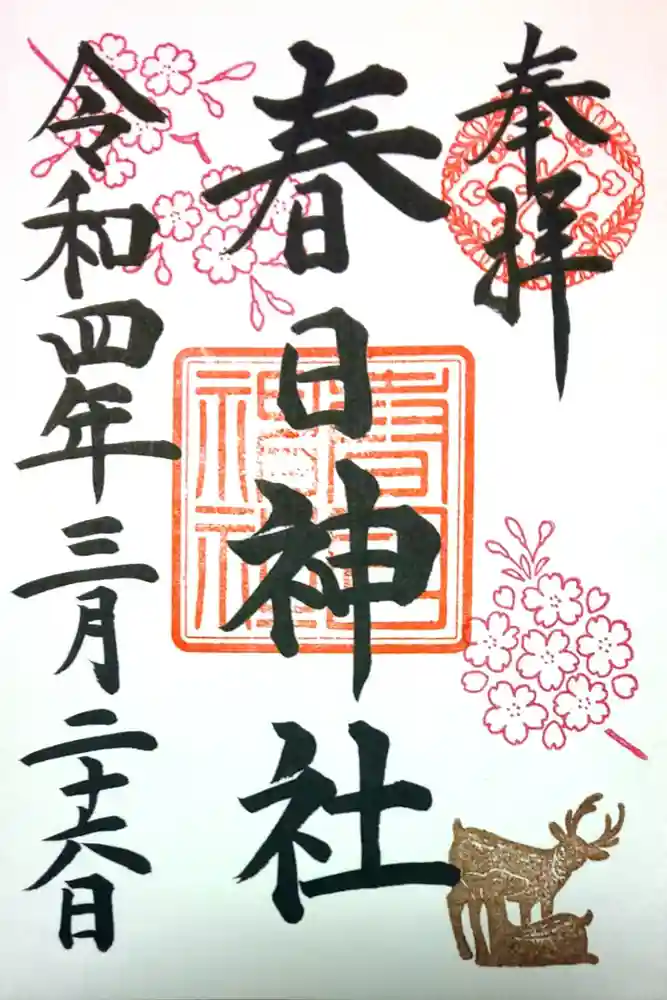 奉拝
春日神社
令和四年三月二十六日
春日
神社